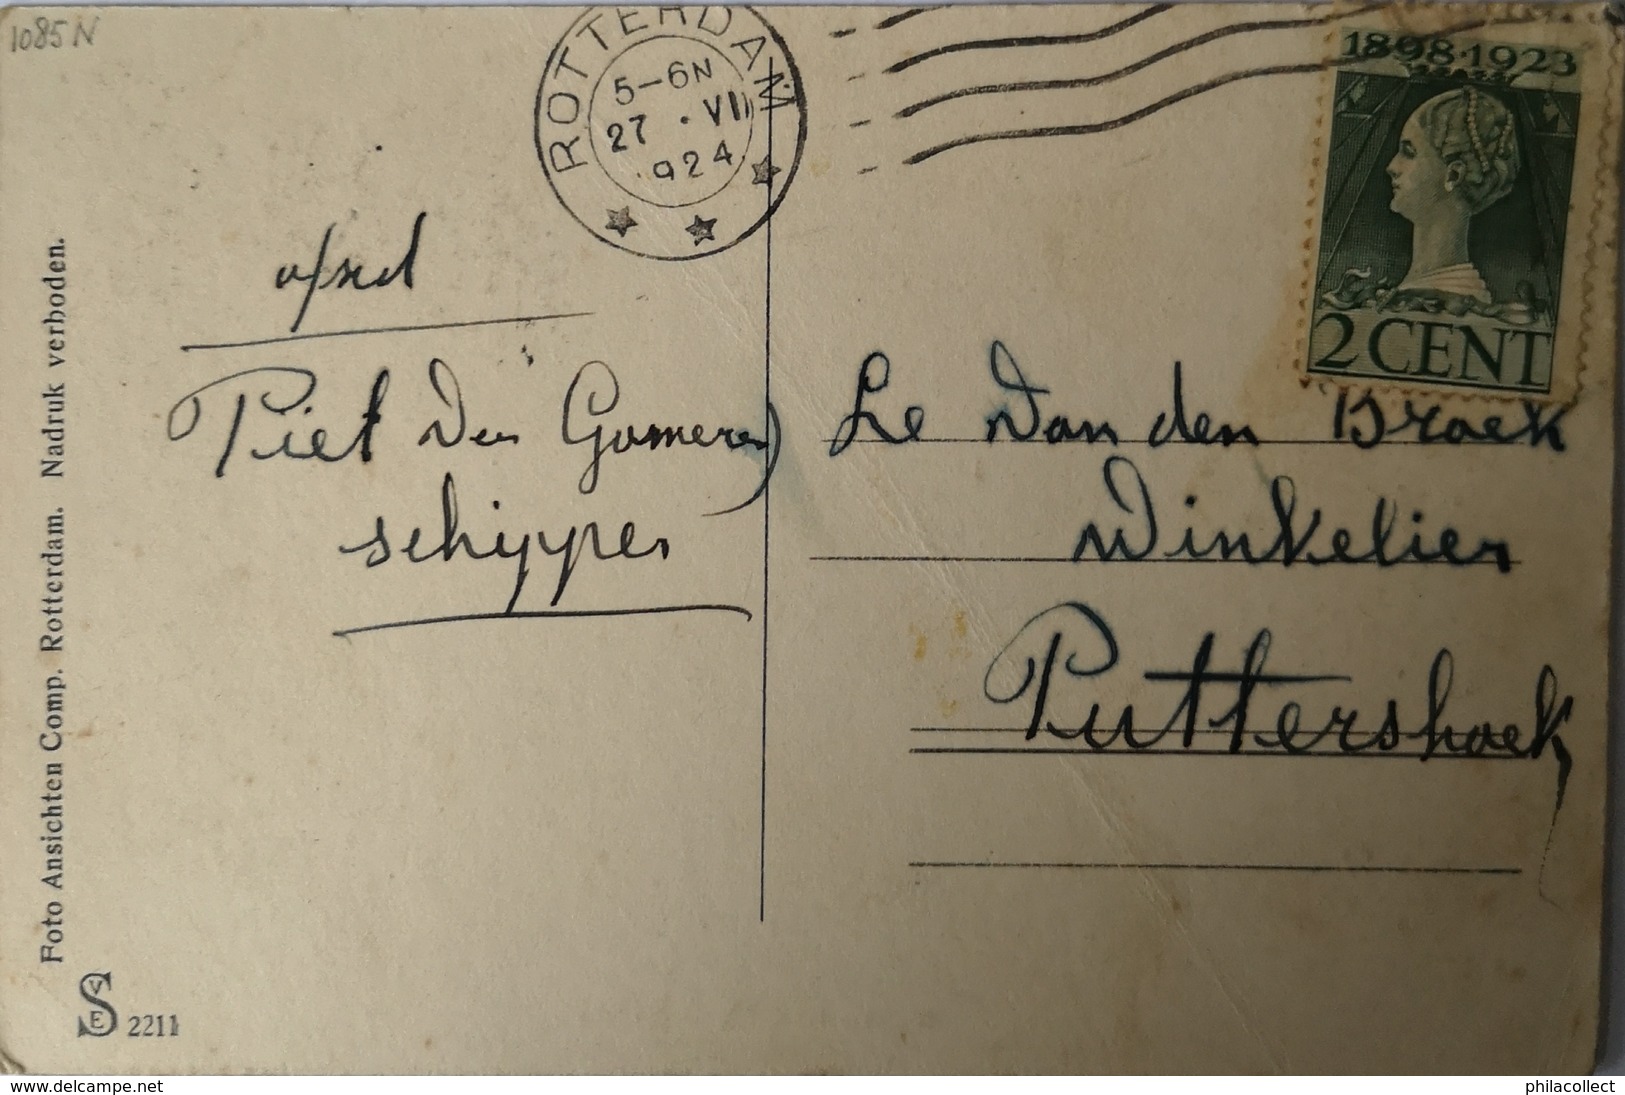 1085 N
ROTTERDAM
5-6N
27 · VII
1924
1898·1923
2 CENT
afsd
Piet Den Gomeren
schipper
Le van den Broek
Winkelier
Puttershoek
Foto Ansichten Comp. Rotterdam. Nadruk verboden.
SVE 2211
www.delcampe.net
philacollect